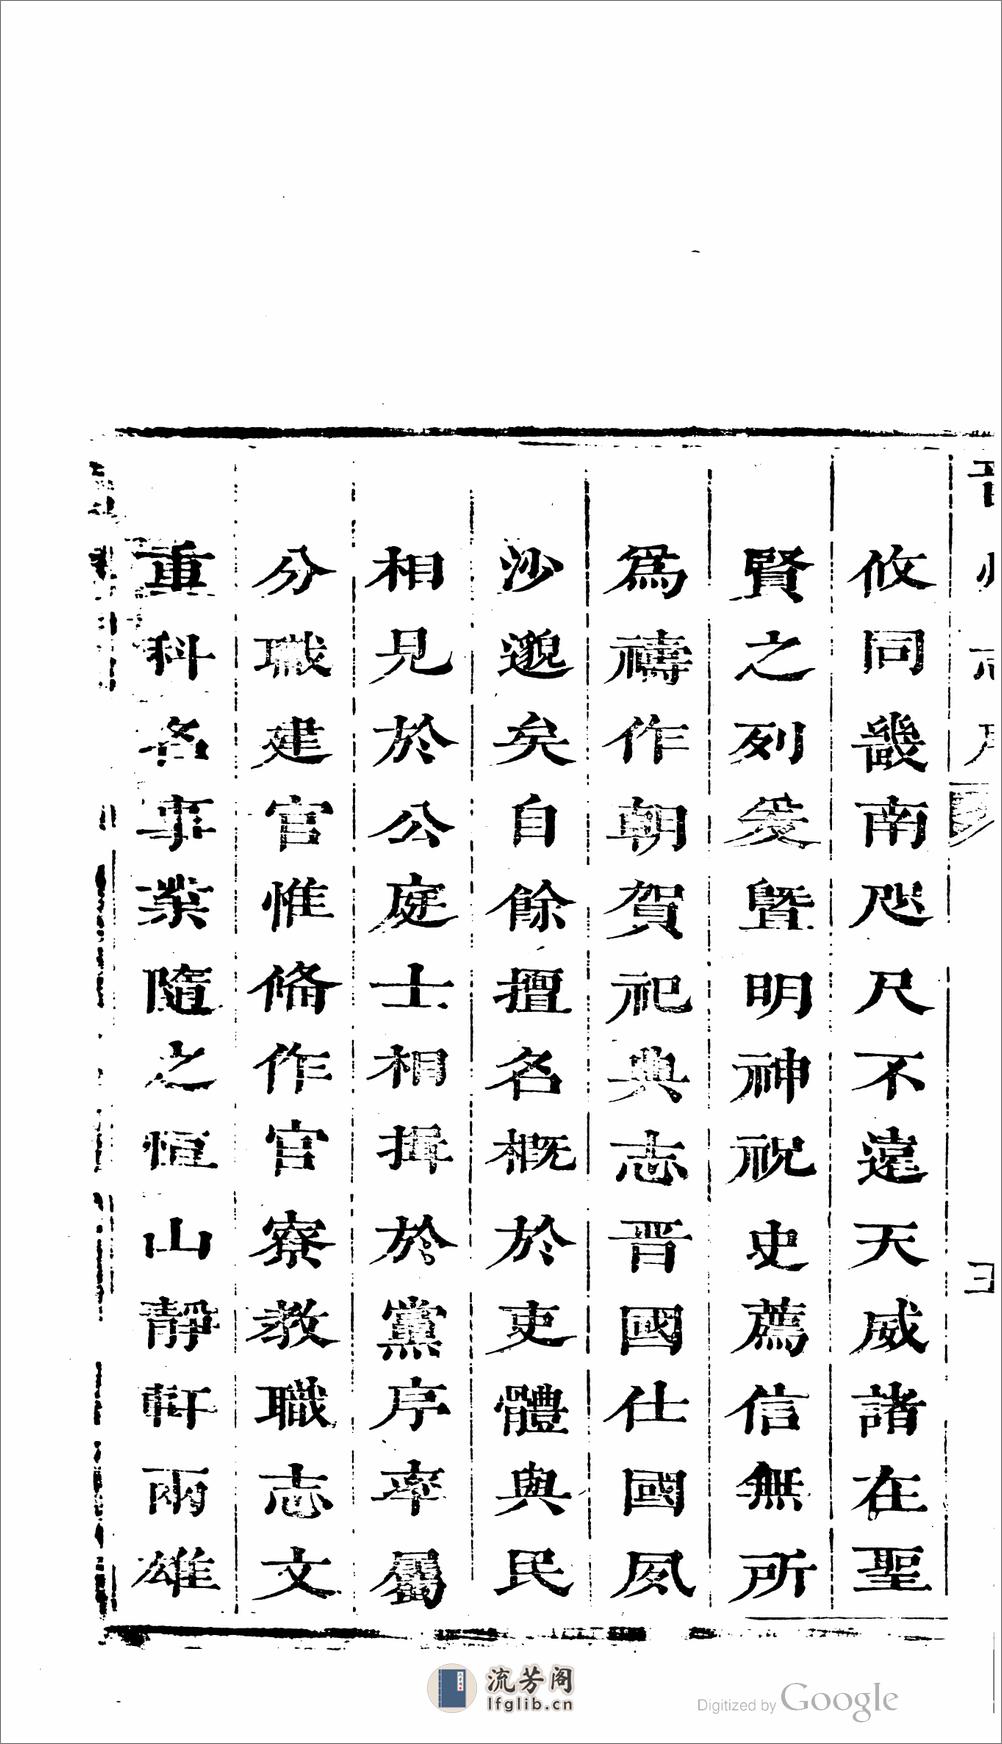 攸同畿南咫尺不遠天威諸在聖
賢之列爰暨明神祝史薦信無所
爲禱作朝賀祀典志晋國仕國夙
沙邈矣自餘擅名概於吏體與民
相見於公庭士相揖於黨序率屬
分職建官惟脩作官寮教職志文
重科名事業隨之恒山靜軒兩雄
流芳阁
lfglib.cn
Digitized by Google